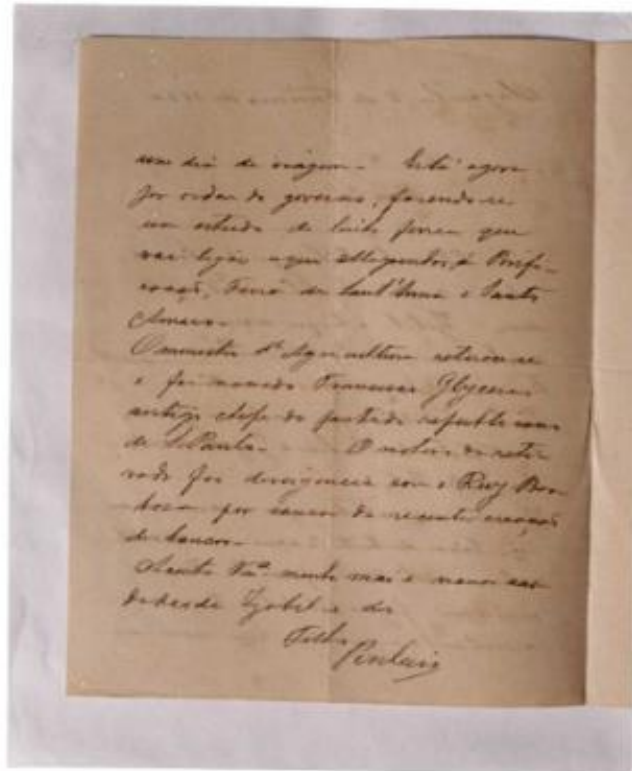 um dia de viagem - Está agora
por ordem do governo, fazendo-se
um estudo de linha ferrea que
vai ligar aqui Alagoinhas, à Purifi-
cação, Feira de Sant'Anna e Santo
Amaro.
O ministro d'Agricultura retirou-se
e foi nomeado Francisco Glycerio
antigo chefe do partido republicano
de S. Paulo - O motivo da reti-
rada foi divergencia com o Ruy Bar
bosa por causa da recente creação
de bancos.
Aceite V.ª minha mai e
saudade e do
Filho